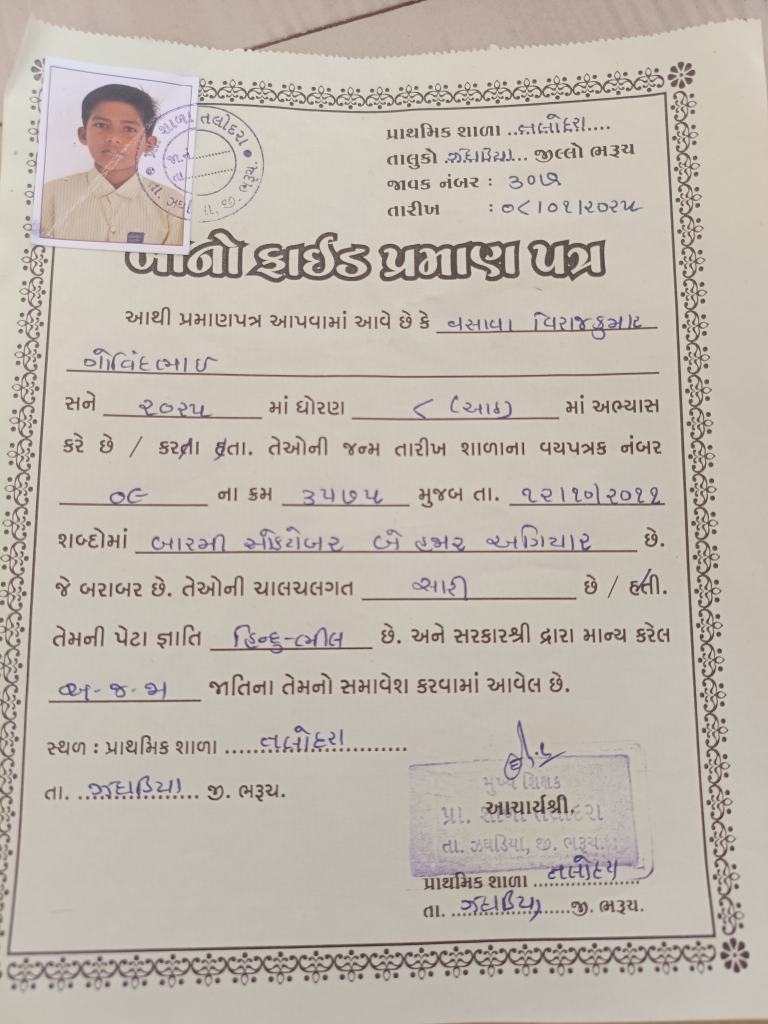 પ્રાથમિક શાળા ..તલોદરા....
તાલુકો .ઝઘડિયા... જીલ્લો ભરૂચ
જાવક નંબર : ૩૦૭
તારીખ : ૦૮/૦૧/૨૦૨૫
પ્રા. શાળા તલોદરા
જા.નં..........
તા..........
તા. ઝઘડિયા, જી. ભરૂચ.
બોનો ફાઈડ પ્રમાણ પત્ર
આથી પ્રમાણપત્ર આપવામાં આવે છે કે વસાવા વિરાજકુમાર
ગોવિંદભાઇ
સને ૨૦૨૫ માં ધોરણ ૮ (આઠ) માં અભ્યાસ
કરે છે / કરતા હતા. તેઓની જન્મ તારીખ શાળાના વયપત્રક નંબર
૦૯ ના ક્રમ ૩૫૭૫ મુજબ તા. ૧૨/૧૦/૨૦૧૧
શબ્દોમાં બારમી ઓક્ટોબર બે હજાર અગિયાર છે.
જે બરાબર છે. તેઓની ચાલચલગત સારી છે / હતી.
તેમની પેટા જ્ઞાતિ હિન્દુ-ભીલ છે. અને સરકારશ્રી દ્વારા માન્ય કરેલ
અ.જ.જા જાતિના તેમનો સમાવેશ કરવામાં આવેલ છે.
સ્થળ : પ્રાથમિક શાળા .....તલોદરા..........
તા. ..ઝઘડિયા... જી. ભરૂચ.
મુખ્ય શિક્ષક
આચાર્યશ્રી,
પ્રા. શાળા તલોદરા
તા. ઝઘડિયા, જી. ભરૂચ.
પ્રાથમિક શાળા ..તલોદરા....
તા. ..ઝઘડિયા.....જી. ભરૂચ.